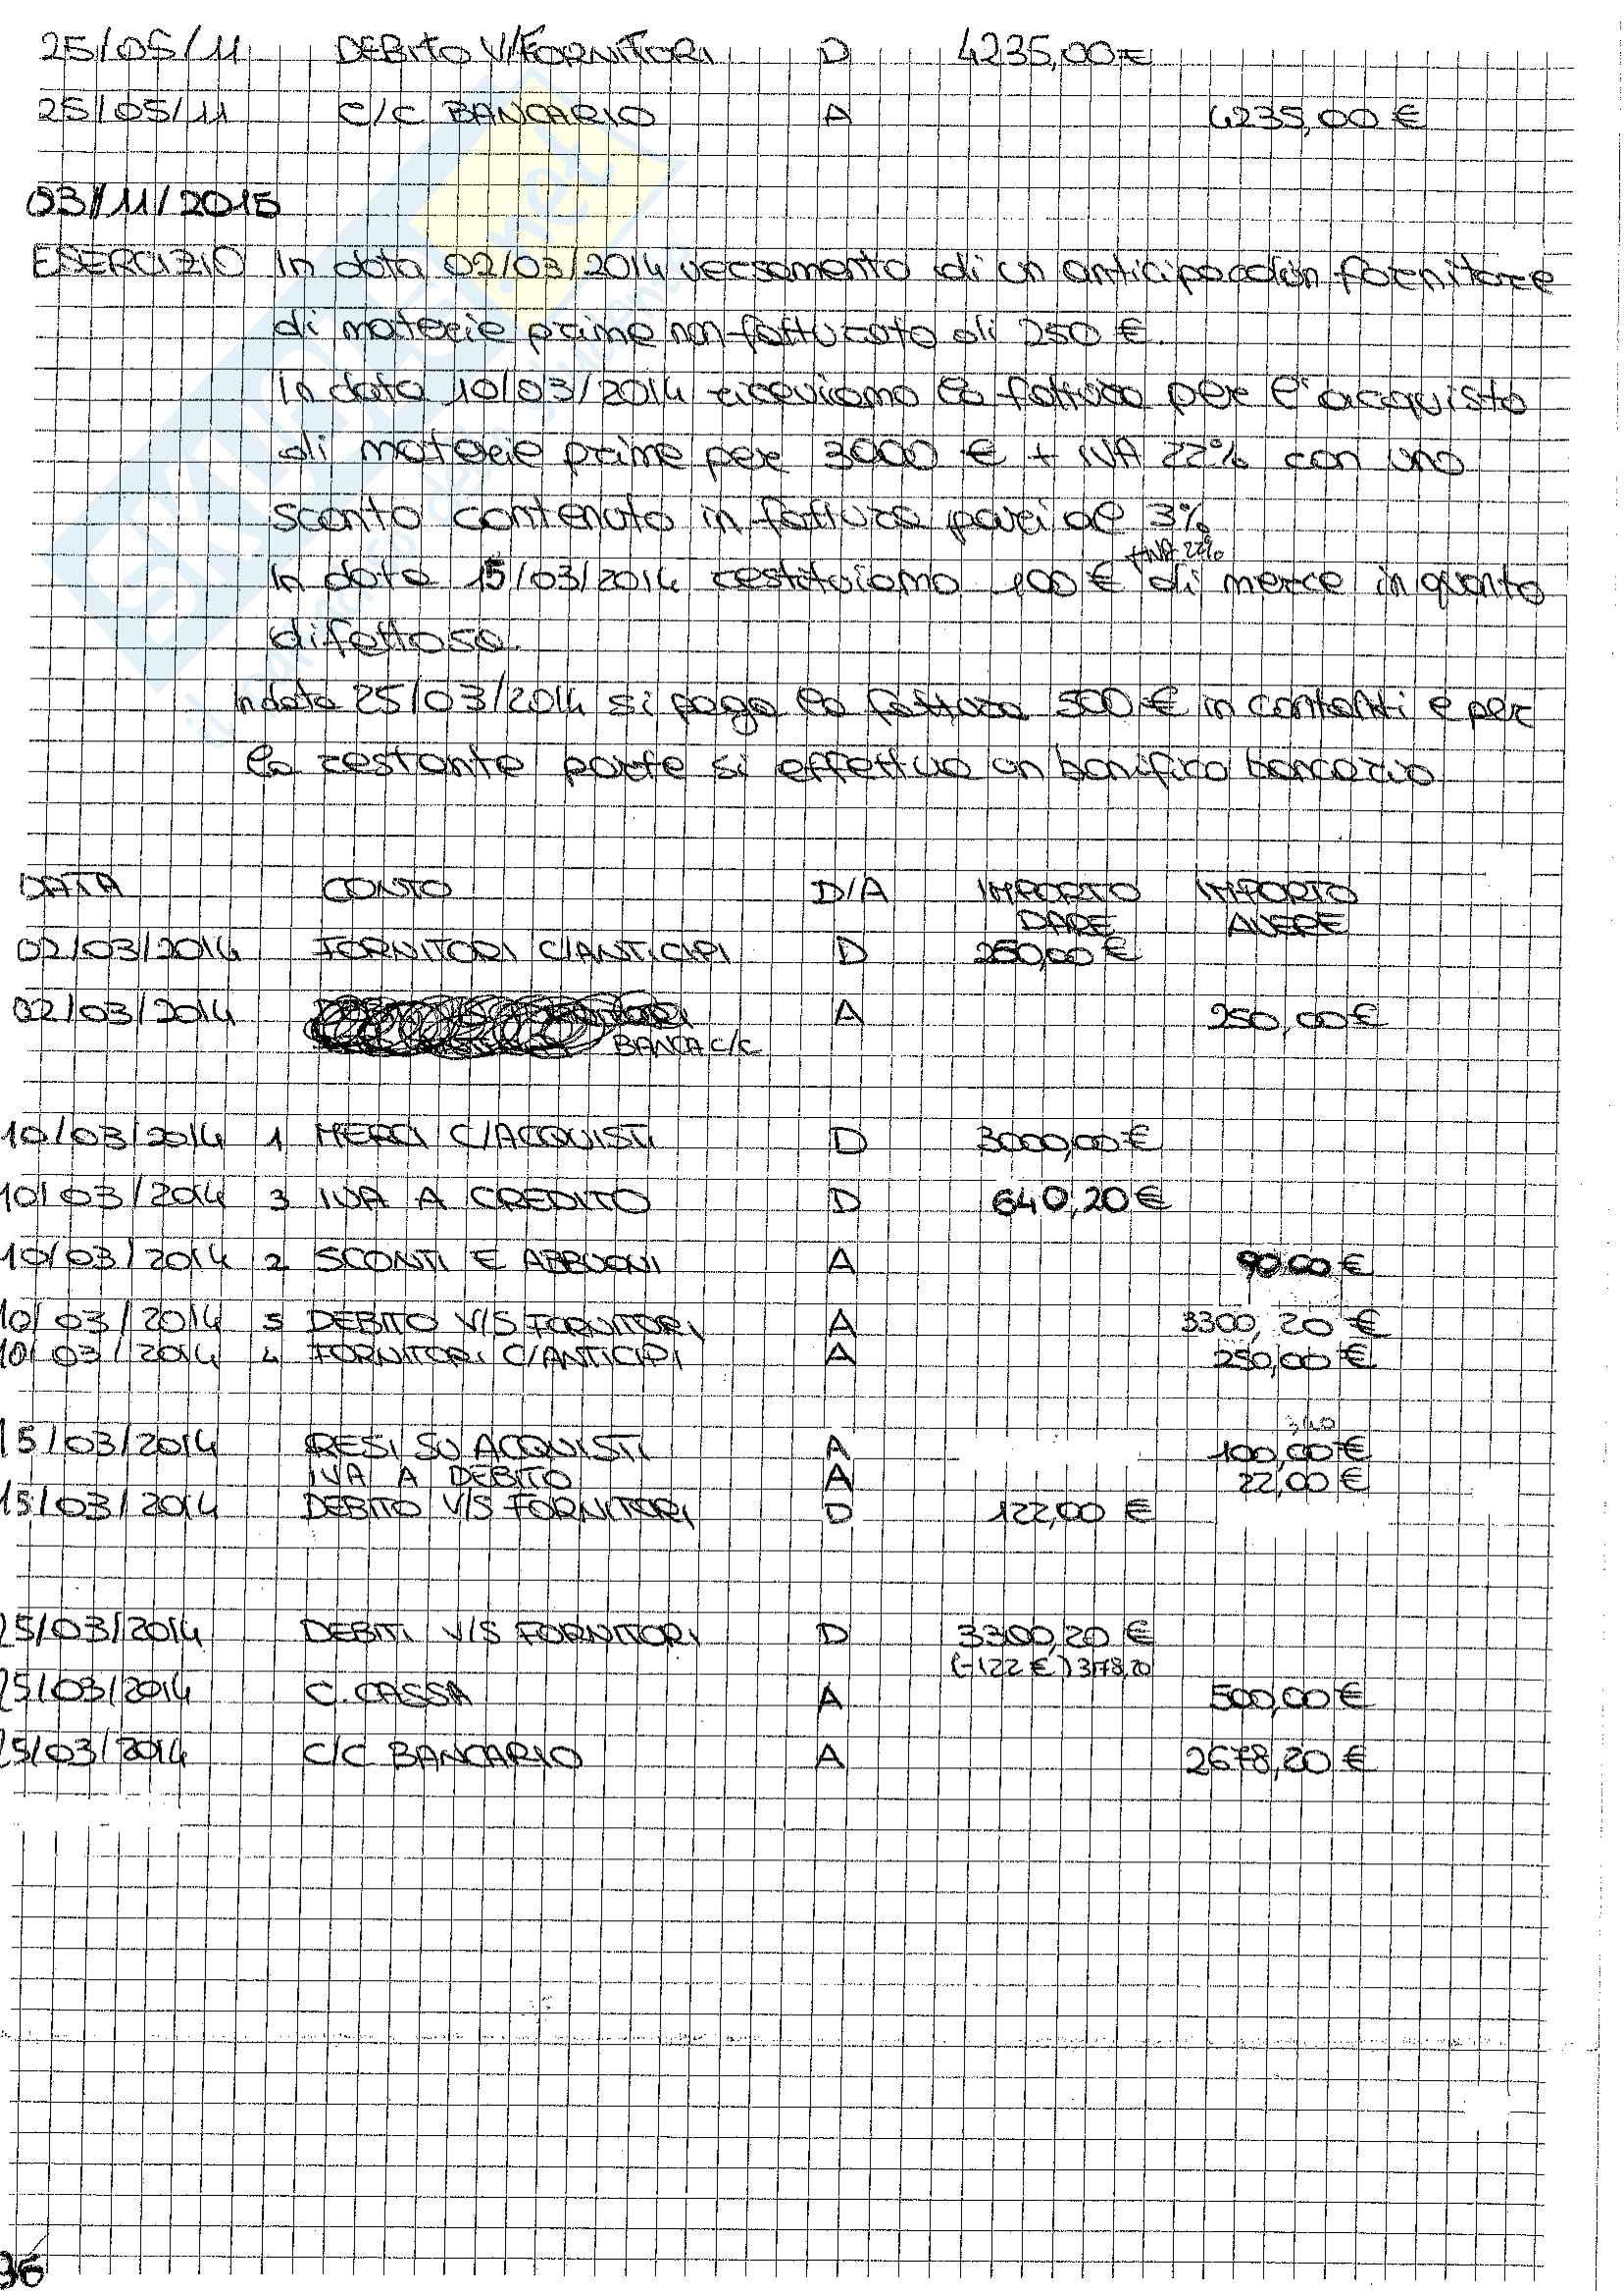 25/05/11 DEBITO V/FORNITORI D 4235,00 €
25/05/11 C/C BANCARIO A 4235,00 €
03/11/2015
ESERCIZIO In data 02/03/2014 versamento di un anticipo ad un fornitore
di materie prime non fatturato di 250 €.
In data 10/03/2014 riceviamo la fattura per l'acquisto
di materie prime per 3000 € + IVA 22% con uno
sconto contenuto in fattura pari al 3%
+IVA 22%
In data 15/03/2014 restituiamo 100 € di merce in quanto
difettosa.
In data 25/03/2014 si paga la fattura 500 € in contanti e per
la restante parte si effettua un bonifico bancario
DATA CONTO D/A IMPORTO IMPORTO
DARE AVERE
02/03/2014 FORNITORI C/ANTICIPI D 250,00 €
02/03/2014 A 250,00 €
BANCA C/C
10/03/2014 1 MERCI C/ACQUISTI D 3000,00 €
10/03/2014 3 IVA A CREDITO D 640,20 €
10/03/2014 2 SCONTI E ABBUONI A 90,00 €
10/03/2014 5 DEBITO V/S FORNITORI A 3300,20 €
10/03/2014 4 FORNITORI C/ANTICIPI A 250,00 €
15/03/2014 RESI SU ACQUISTI A 100,00 €
IVA A DEBITO A 22,00 €
15/03/2014 DEBITO V/S FORNITORI D 122,00 €
25/03/2014 DEBITI V/S FORNITORI D 3300,20 €
(-122 €) 3178,20
25/03/2014 C. CASSA A 500,00 €
25/03/2014 C/C BANCARIO A 2678,20 €
36